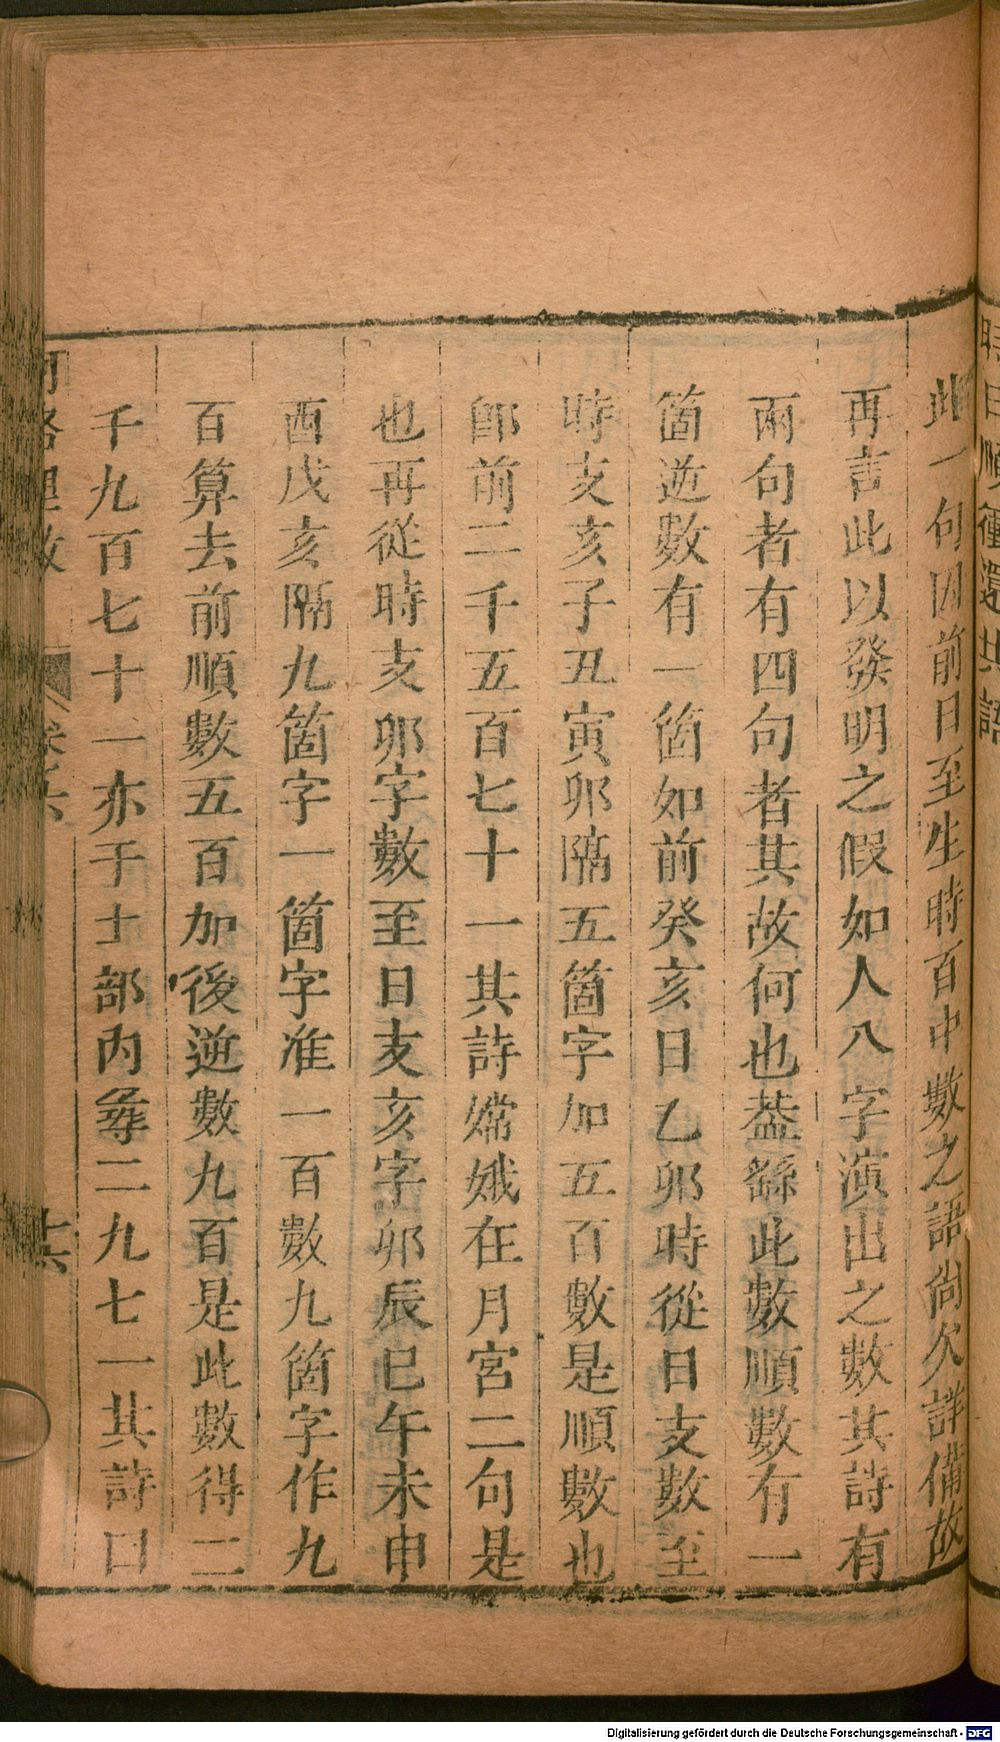 時日順種還共語
此一句因前日至生時百中數之語尙欠詳備故
再言此以發明之假如人八字演出之數其詩有
兩句者有四句者其故何也葢繇此數順數有一
箇逆數有一箇如前癸亥日乙卯時從日支數至
時支亥子丑寅卯隔五箇字加五百數是順數也
郎前二千五百七十一其詩嫦娥在月宮二句是
也再從時支卯字數至日支亥字卯辰巳午未申
酉戌亥隔九箇字一箇字准一百數九箇字作九
百算去前順數五百加後逆數九百是此數得二
千九百七十一亦于士部內尋二九七一其詩曰
河洛理數
卷六
十六
Digitalisierung gefördert durch die Deutsche Forschungsgemeinschaft - DFG